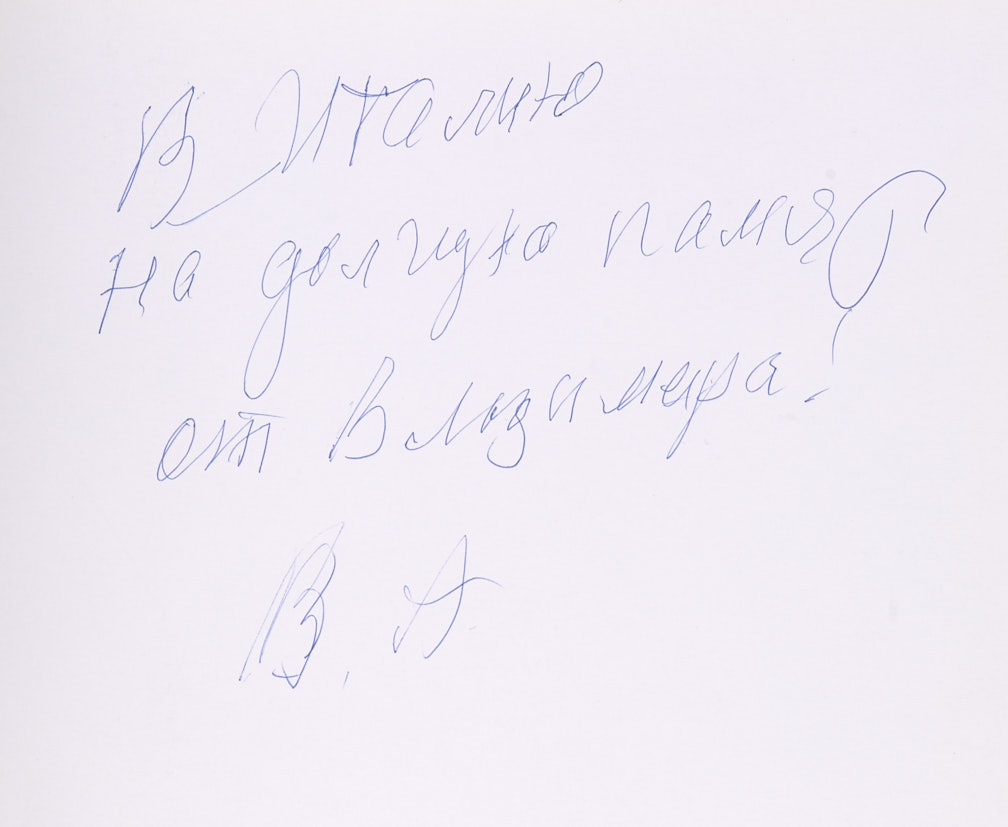 В Италию
на долгую память
от Владимира!
В. А.